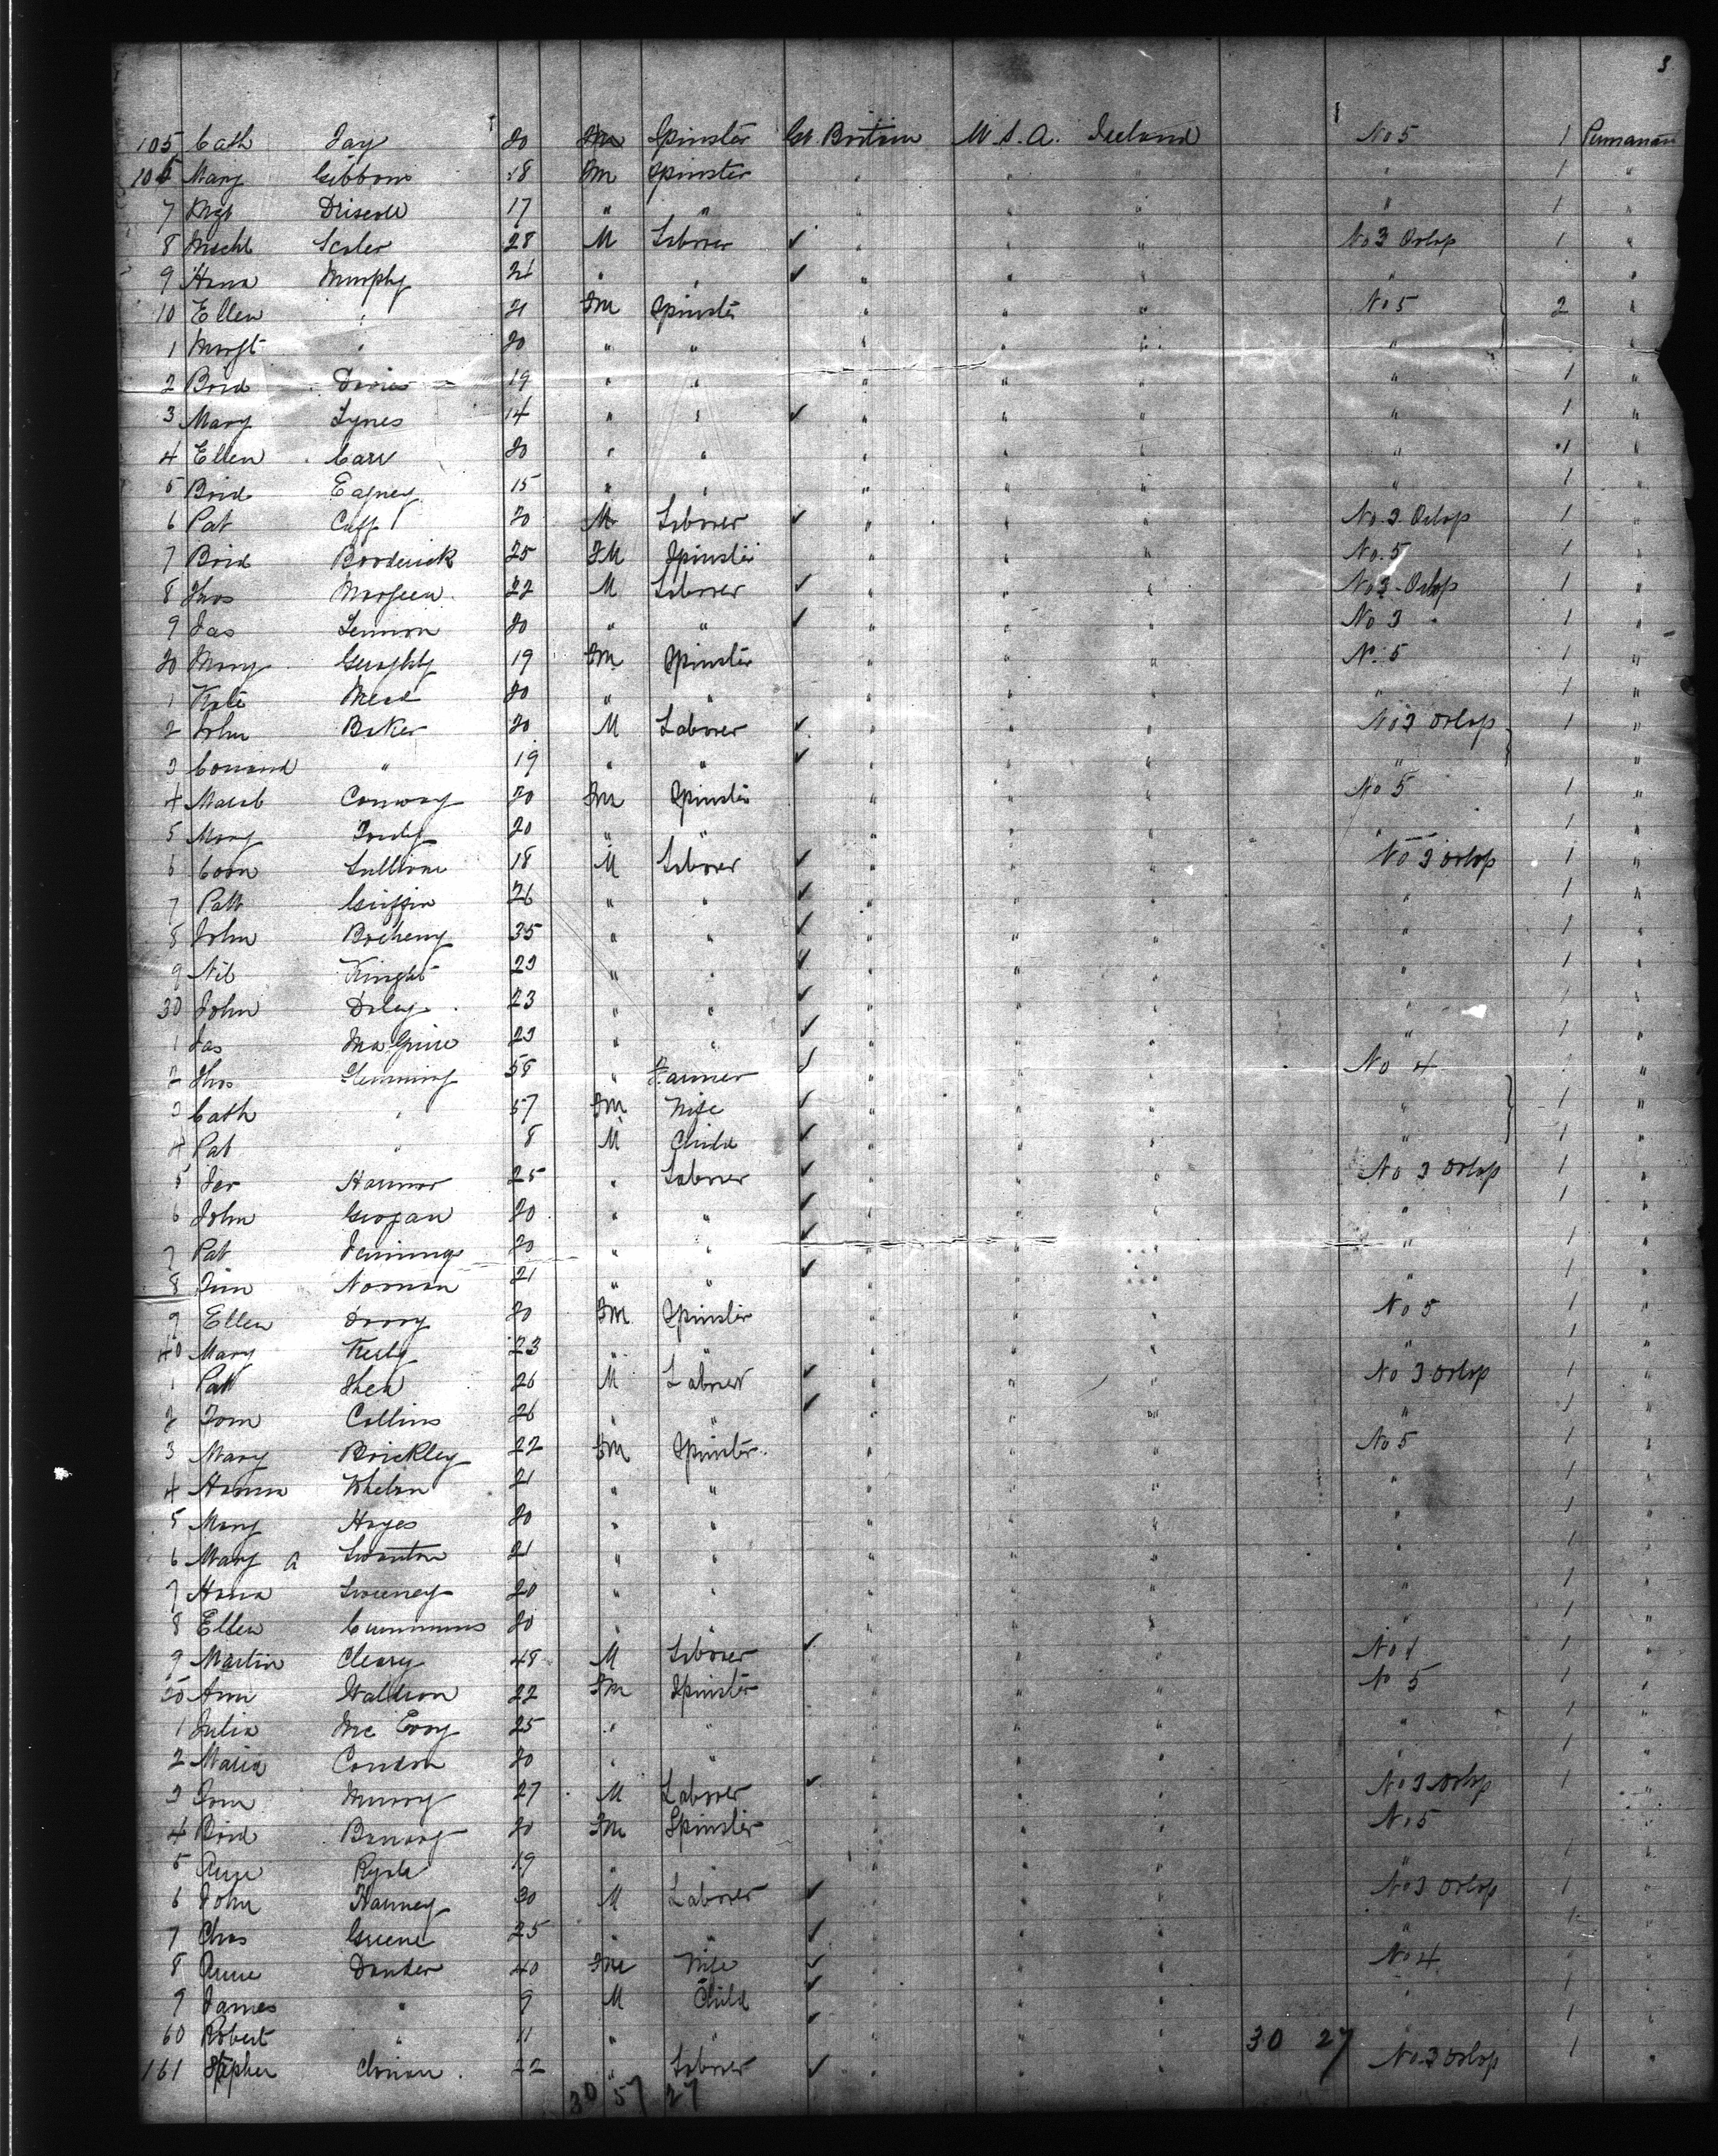 3
105 Cath Fay 20 Fm Spinster Gt. Britain U.S.A. Ireland No 5 1 Permanent
106 Mary Gibbons 18 Fm Spinster " " " " 1 "
7 Mgt Driscoll 17 " " " " " " 1 "
8 Michl Scaler 28 M Laborer ✓ " " " No 3 Orlop 1 "
9 Hana Murphy 21 " " ✓ " " " " "
10 Ellen " 21 Fm Spinster " " " No 5 2 "
1 Margt " 20 " " " " " " "
2 Brid Davies 19 " " " " " " 1 "
3 Mary Lynes 14 " " ✓ " " " " 1 "
4 Ellen Carr 20 " " " " " " 1 "
5 Brid Eagney 15 " " " " " " 1 "
6 Pat Cuff 20 M Laborer ✓ " " " No 3 Orlop 1 "
7 Brid Broderick 25 FM Spinster " " " No. 5 1 "
8 Thos 22 M Laborer ✓ " " " No 3 Orlop 1 "
9 Jas Lennon 20 " " ✓ " " " No 3 " 1 "
20 Mary Geraghty 19 Fm Spinster " " " No 5 1 "
1 Kate Mead 20 " " " " " " 1 "
2 John Baker 20 M Laborer ✓ " " " No 3 Orlop 1 "
3 " 19 " " ✓ " " " " "
4 Conway 20 Fm Spinster " " " No 5 1 "
5 Mary 20 " " " " " " 1 "
6 Corn Sullivan 18 M Laborer ✓ " " " No 3 Orlop 1 "
7 Patt Griffin 26 " " ✓ " " " " 1 "
8 John 35 " " ✓ " " " " 1 "
9 Knight 23 " " ✓ " " " " 1 "
30 John Daley 23 " " ✓ " " " " 1 "
1 Jas MaGuire 23 " " ✓ " " " " 1 "
2 Thos Flemming 58 " Farmer ✓ " " " No 4 "
3 Cath " 57 Fm Wife ✓ " " " " 1 "
4 Pat " 8 M Child ✓ " " " " 1 "
5 Jer Hannor 25 " Laborer ✓ " " " No 3 Orlop 1 "
6 John Grogan 20 " " ✓ " " " " 1 "
7 Pat Jennings 20 " " ✓ " " " " 1 "
8 Norman 21 " " ✓ " " " " 1 "
9 Ellen 20 Fm Spinster " " " No 5 1 "
40 Mary 23 " " " " " " 1 "
1 Patt Shea 26 M Laborer ✓ " " " No 3 Orlop 1 "
2 Tom Collins 26 " " ✓ " " " " 1 "
3 Mary Brickley 22 Fm Spinster " " " No 5 1 "
4 Hanna Whelan 21 " " " " " " 1 "
5 Mary Hayes 20 " " " " " " 1 "
6 Mary A Swanton 21 " " " " " " 1 "
7 Hana Sweeney 20 " " " " " " 1 "
8 Ellen Cummins 20 " " " " " " 1 "
9 Martin Cleary 48 M Laborer ✓ " " " No 1 1 "
50 Ann Waldron 22 Fm Spinster " " " No 5 1 "
1 Julia Mc Evoy 25 " " " " " " 1 "
2 Maria Condon 20 " " " " " " 1 "
3 Tom Murray 27 M Laborer ✓ " " " No 3 Orlop 1 "
4 Brid 20 Fm Spinster " " " No 5 "
5 Anne 19 " " " " " " 1 "
6 John Hanney 30 M Laborer ✓ " " " No 3 Orlop 1 "
7 Chas Greene 25 " " ✓ " " " " 1 "
8 Anne 40 Fm Wife ✓ " " " No 4 "
9 James " 9 M Child ✓ " " " " 1 "
60 Robert " 11 " " ✓ " " 30 27 " 1 "
161 Stephen 22 " Laborer ✓ " " " No 3 Orlop 1 "
30 57 27